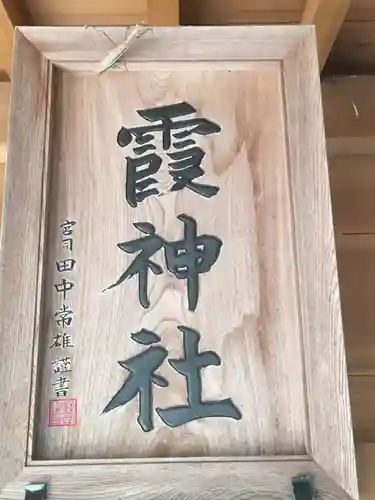 霞神社
宮司田中常雄謹書